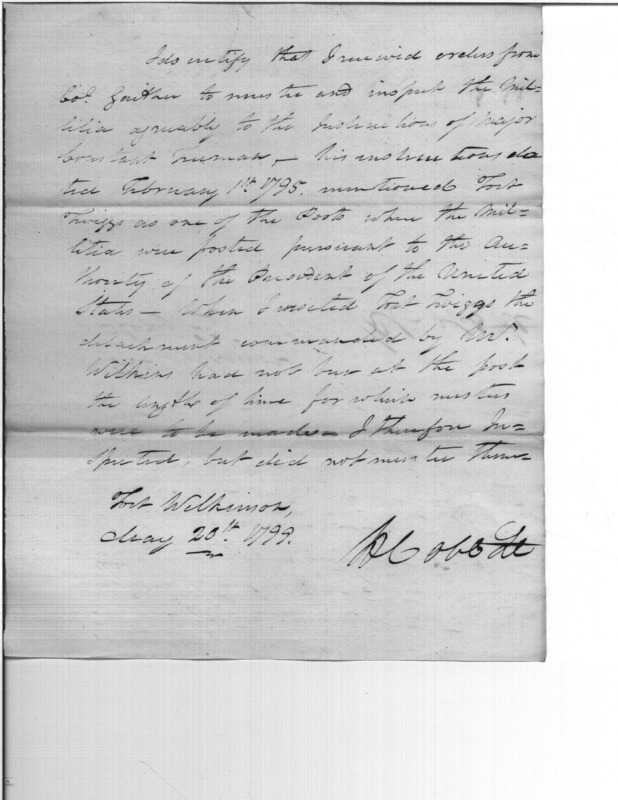 I do certify that I received orders from
Col. Gaither to muster and inspect the Mil=
litia agreeably to the Instructions of Major
Constant Freeman, — his instructions da
ted February 1st 1795. mentioned Fort
Twiggs as one of the Posts where the Mil=
litia were posted pursuant to the Au=
thority of the President of the United
States — When I visited Fort Twiggs the
detachment commanded by
Wilkins had not been at the post
the length of time for which musters
were to be made — I therefore In=
spected, but did not muster them —
Fort Wilkinson,
May 20th 1799.